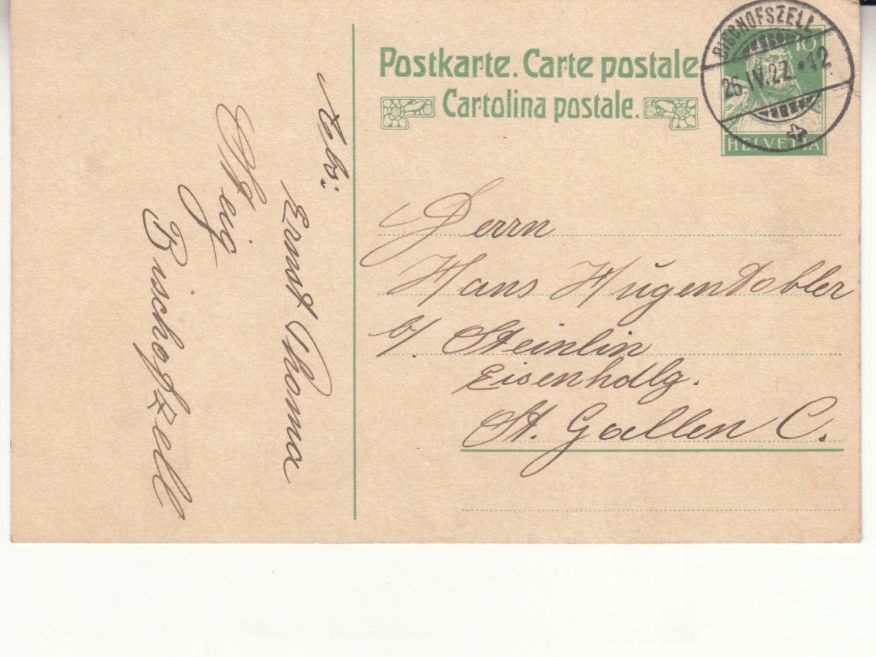 Postkarte. Carte postale.
Cartolina postale.
BISCHOFSZELL
26.IV.27.-12
10
HELVETIA
Abs:
Ernst Thoma
Steig
Bischofszell
Herrn
Hans Hugentobler
b/ Steinlin
Eisenhdlg.
St. Gallen C.